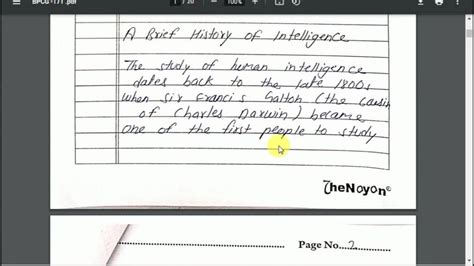 BPCG-171.pdf
1 / 20
100%
A Brief History of Intelligence
The study of human intelligence
dates back to the late 1800s
when Sir Francis Galton (the cousin
of Charles Darwin) became
one of the first people to study
TheNoyon©
Page No...2